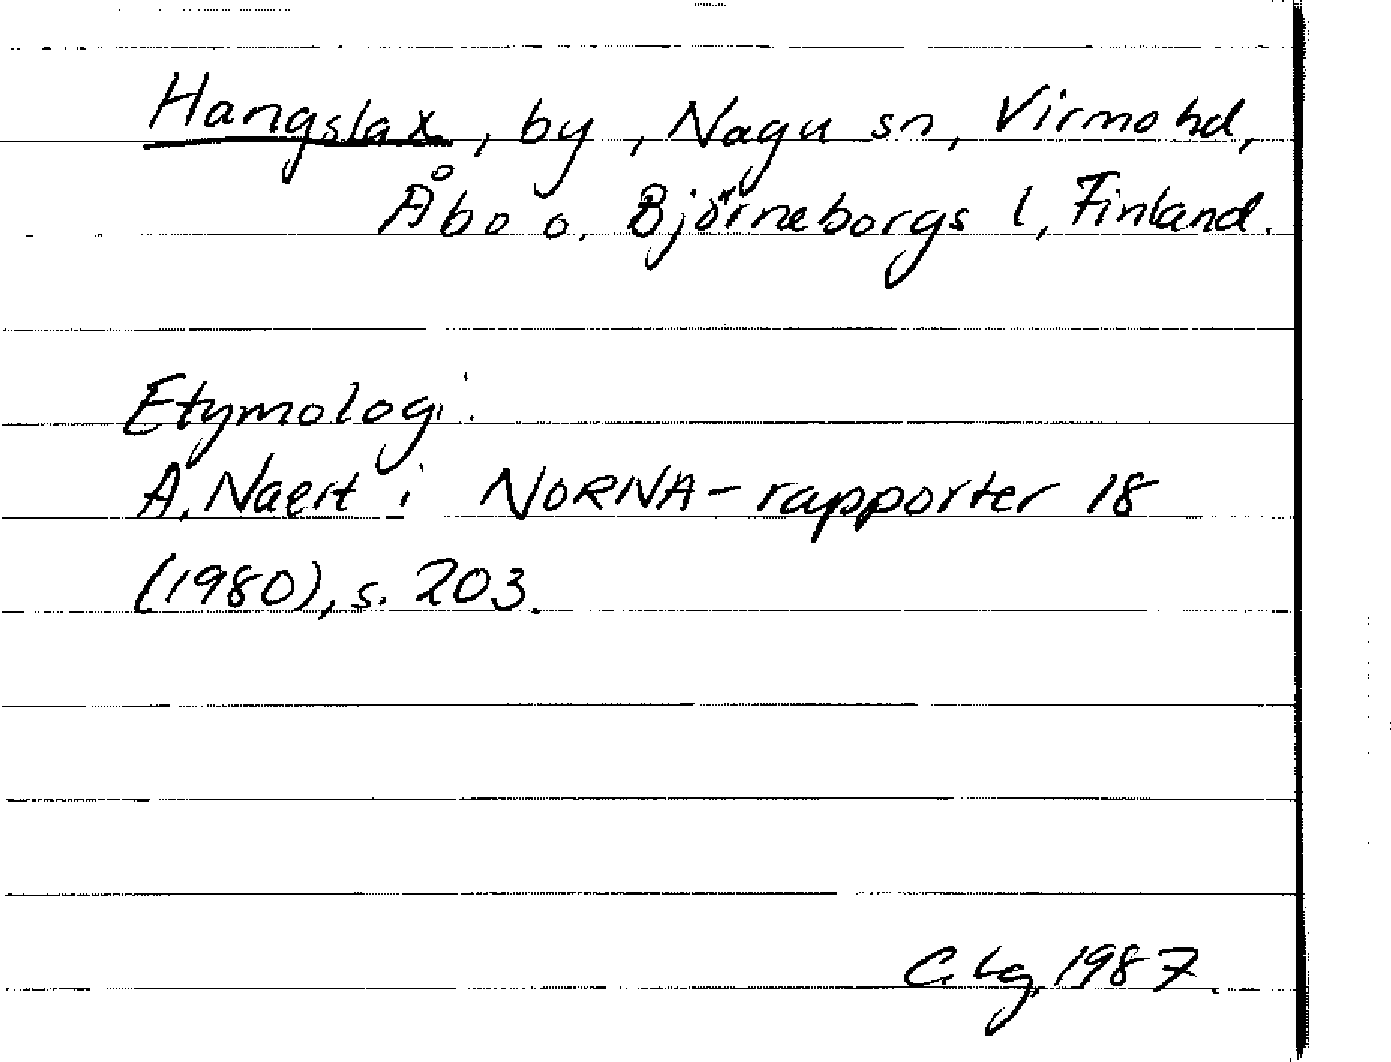 Hangslax, by, Nagu sn, Virmo hd,
Åbo o. Björneborgs l, Finland.
Etymologi:
A. Naert i NORNA-rapporter 18
(1980), s. 203.
C. Lg. 1987.